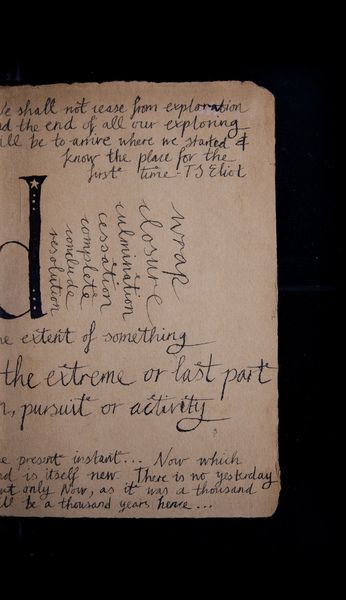 We shall not cease from exploration
nd the end of all our exploring
all be to arrive where we started &
know the place for the
first time - TS Eliot
d
wrap
closure
culmination
cessation
complete
conclude
resolution
he extent of something
the extreme or last part
n, pursuit or activity
e present instant... Now which
nd is itself new There is no yesterday
ut only Now, as it was a thousand
ll be a thousand years hence...